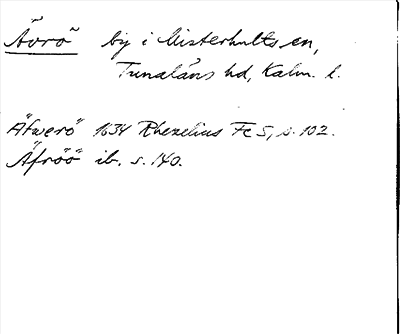 Ävrö by i Misterhults sn,
Tunaläns hd, Kalm. l.
Äfwerö 1634 Rhezelius Fc 5, s. 102.
Äfröö ib. s. 140.